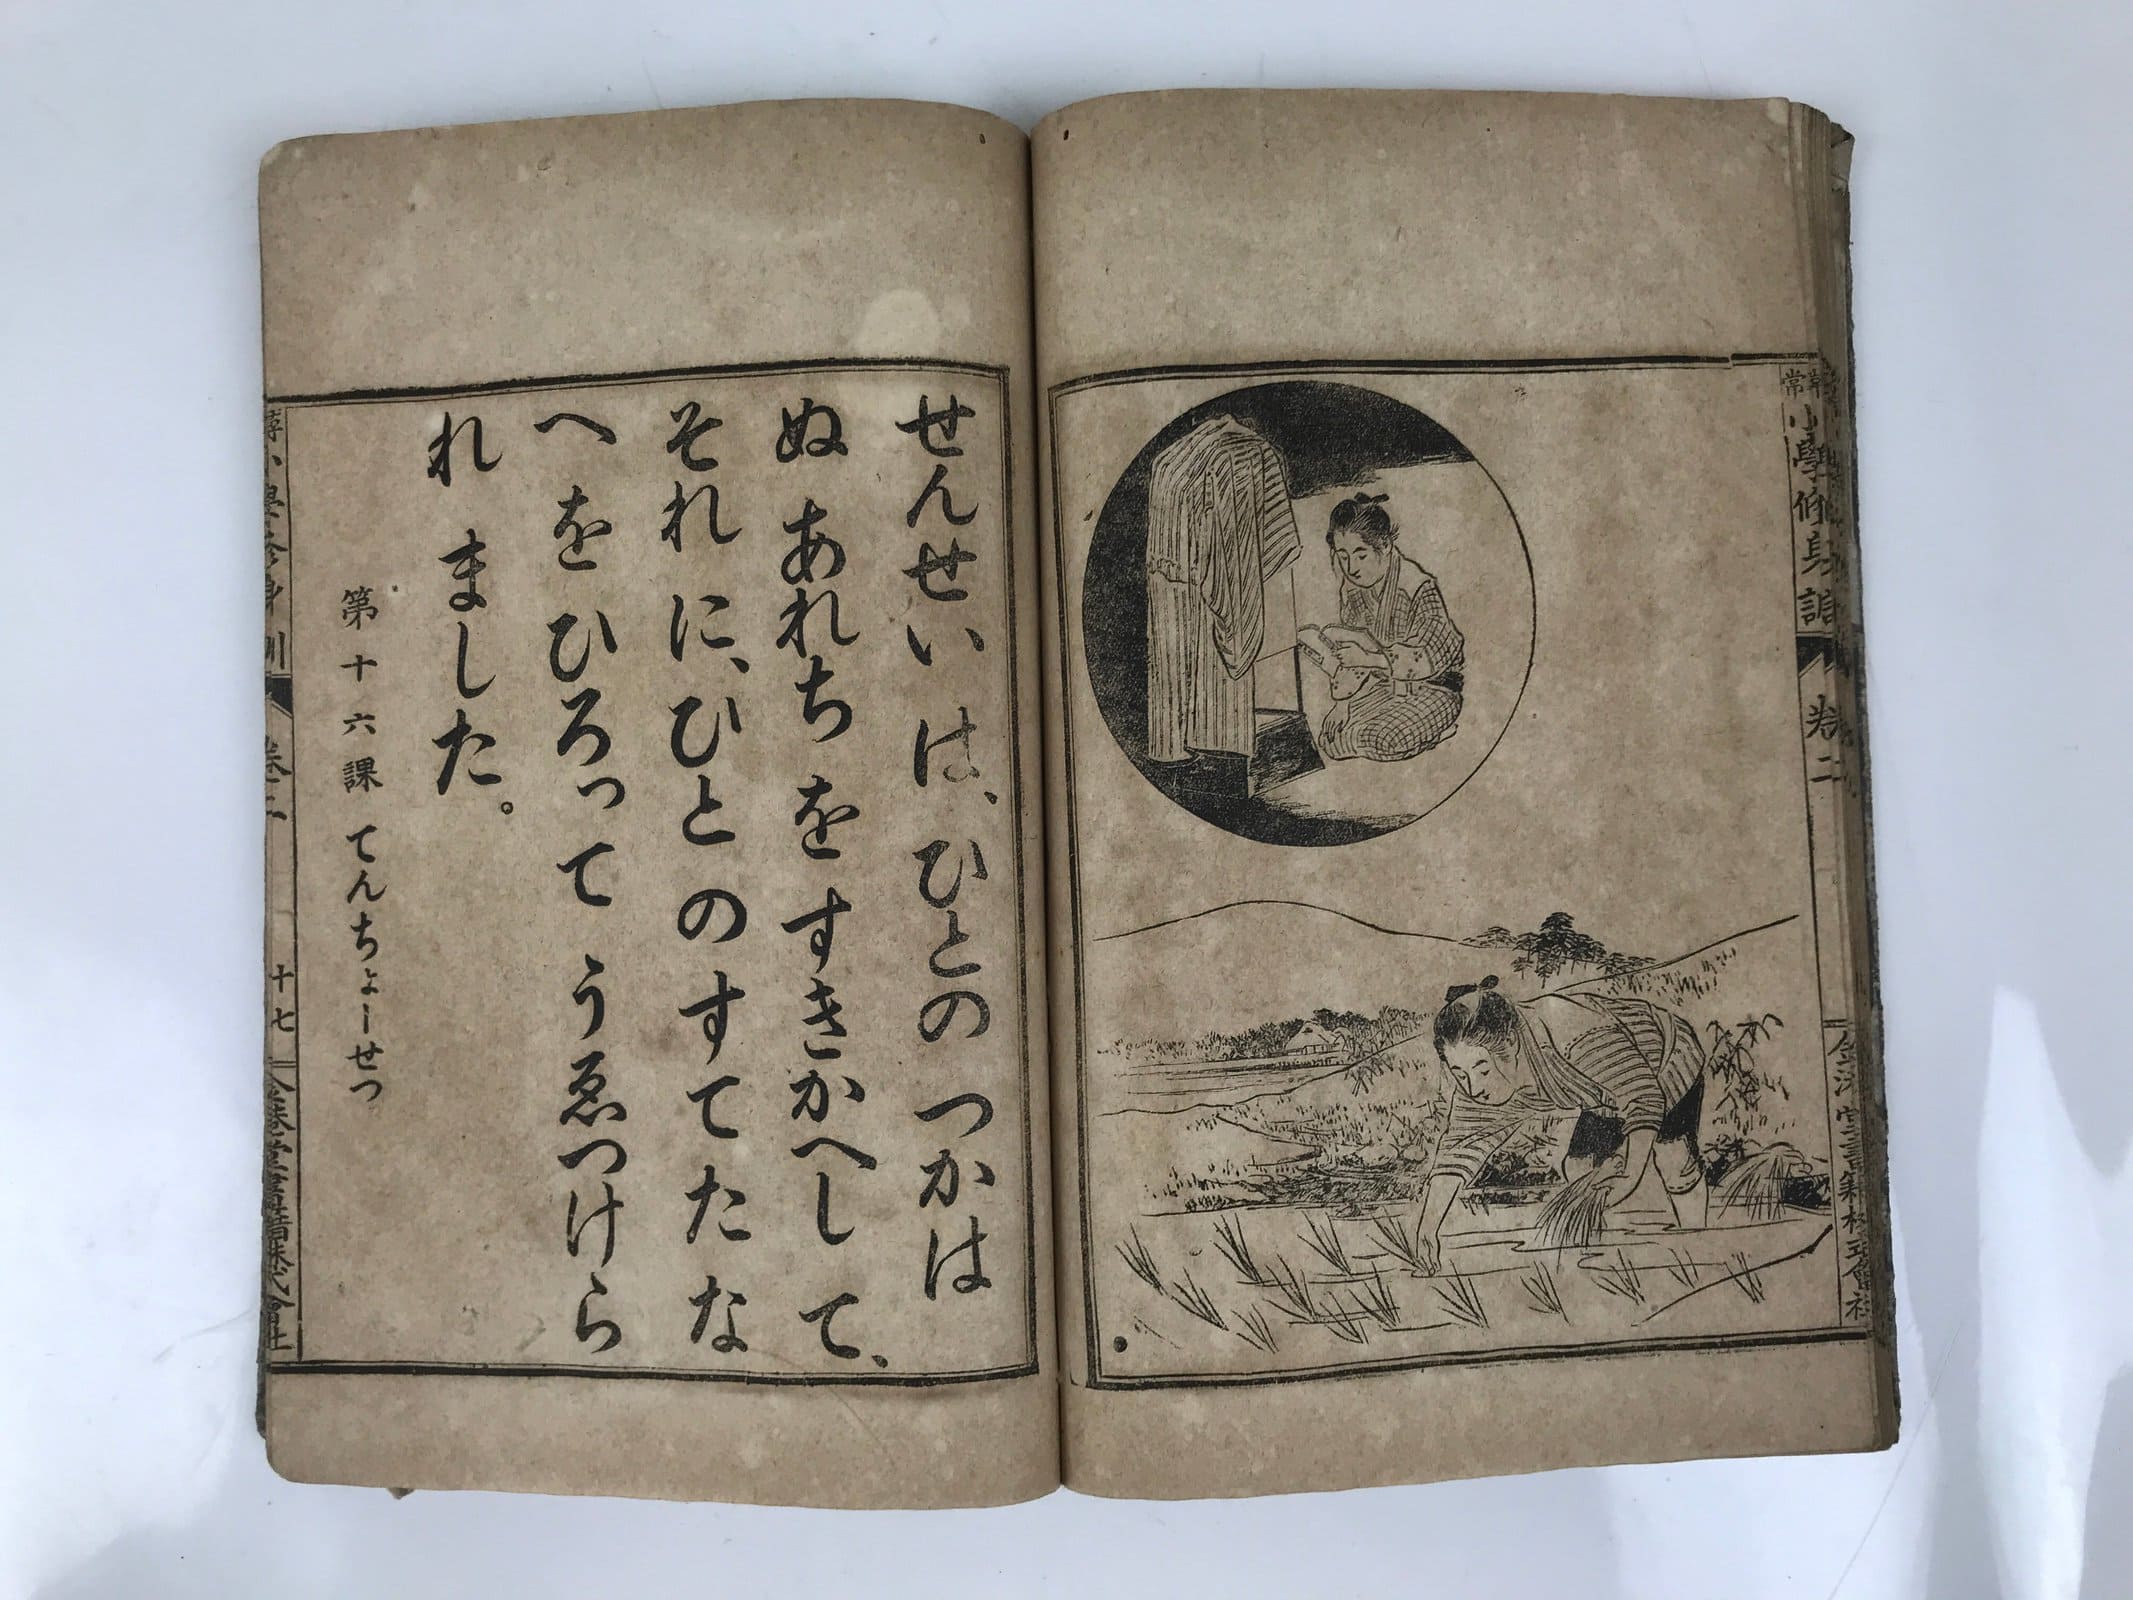 尋常小學修身訓 卷二
せんせい は、ひとの つかは
ぬ あれち を すきかへし て、
それ に、ひと の すて た な
へ を ひろって うゑつけら
れ ました。
第十六課 てんちょーせつ
小學修身訓 卷二 十七